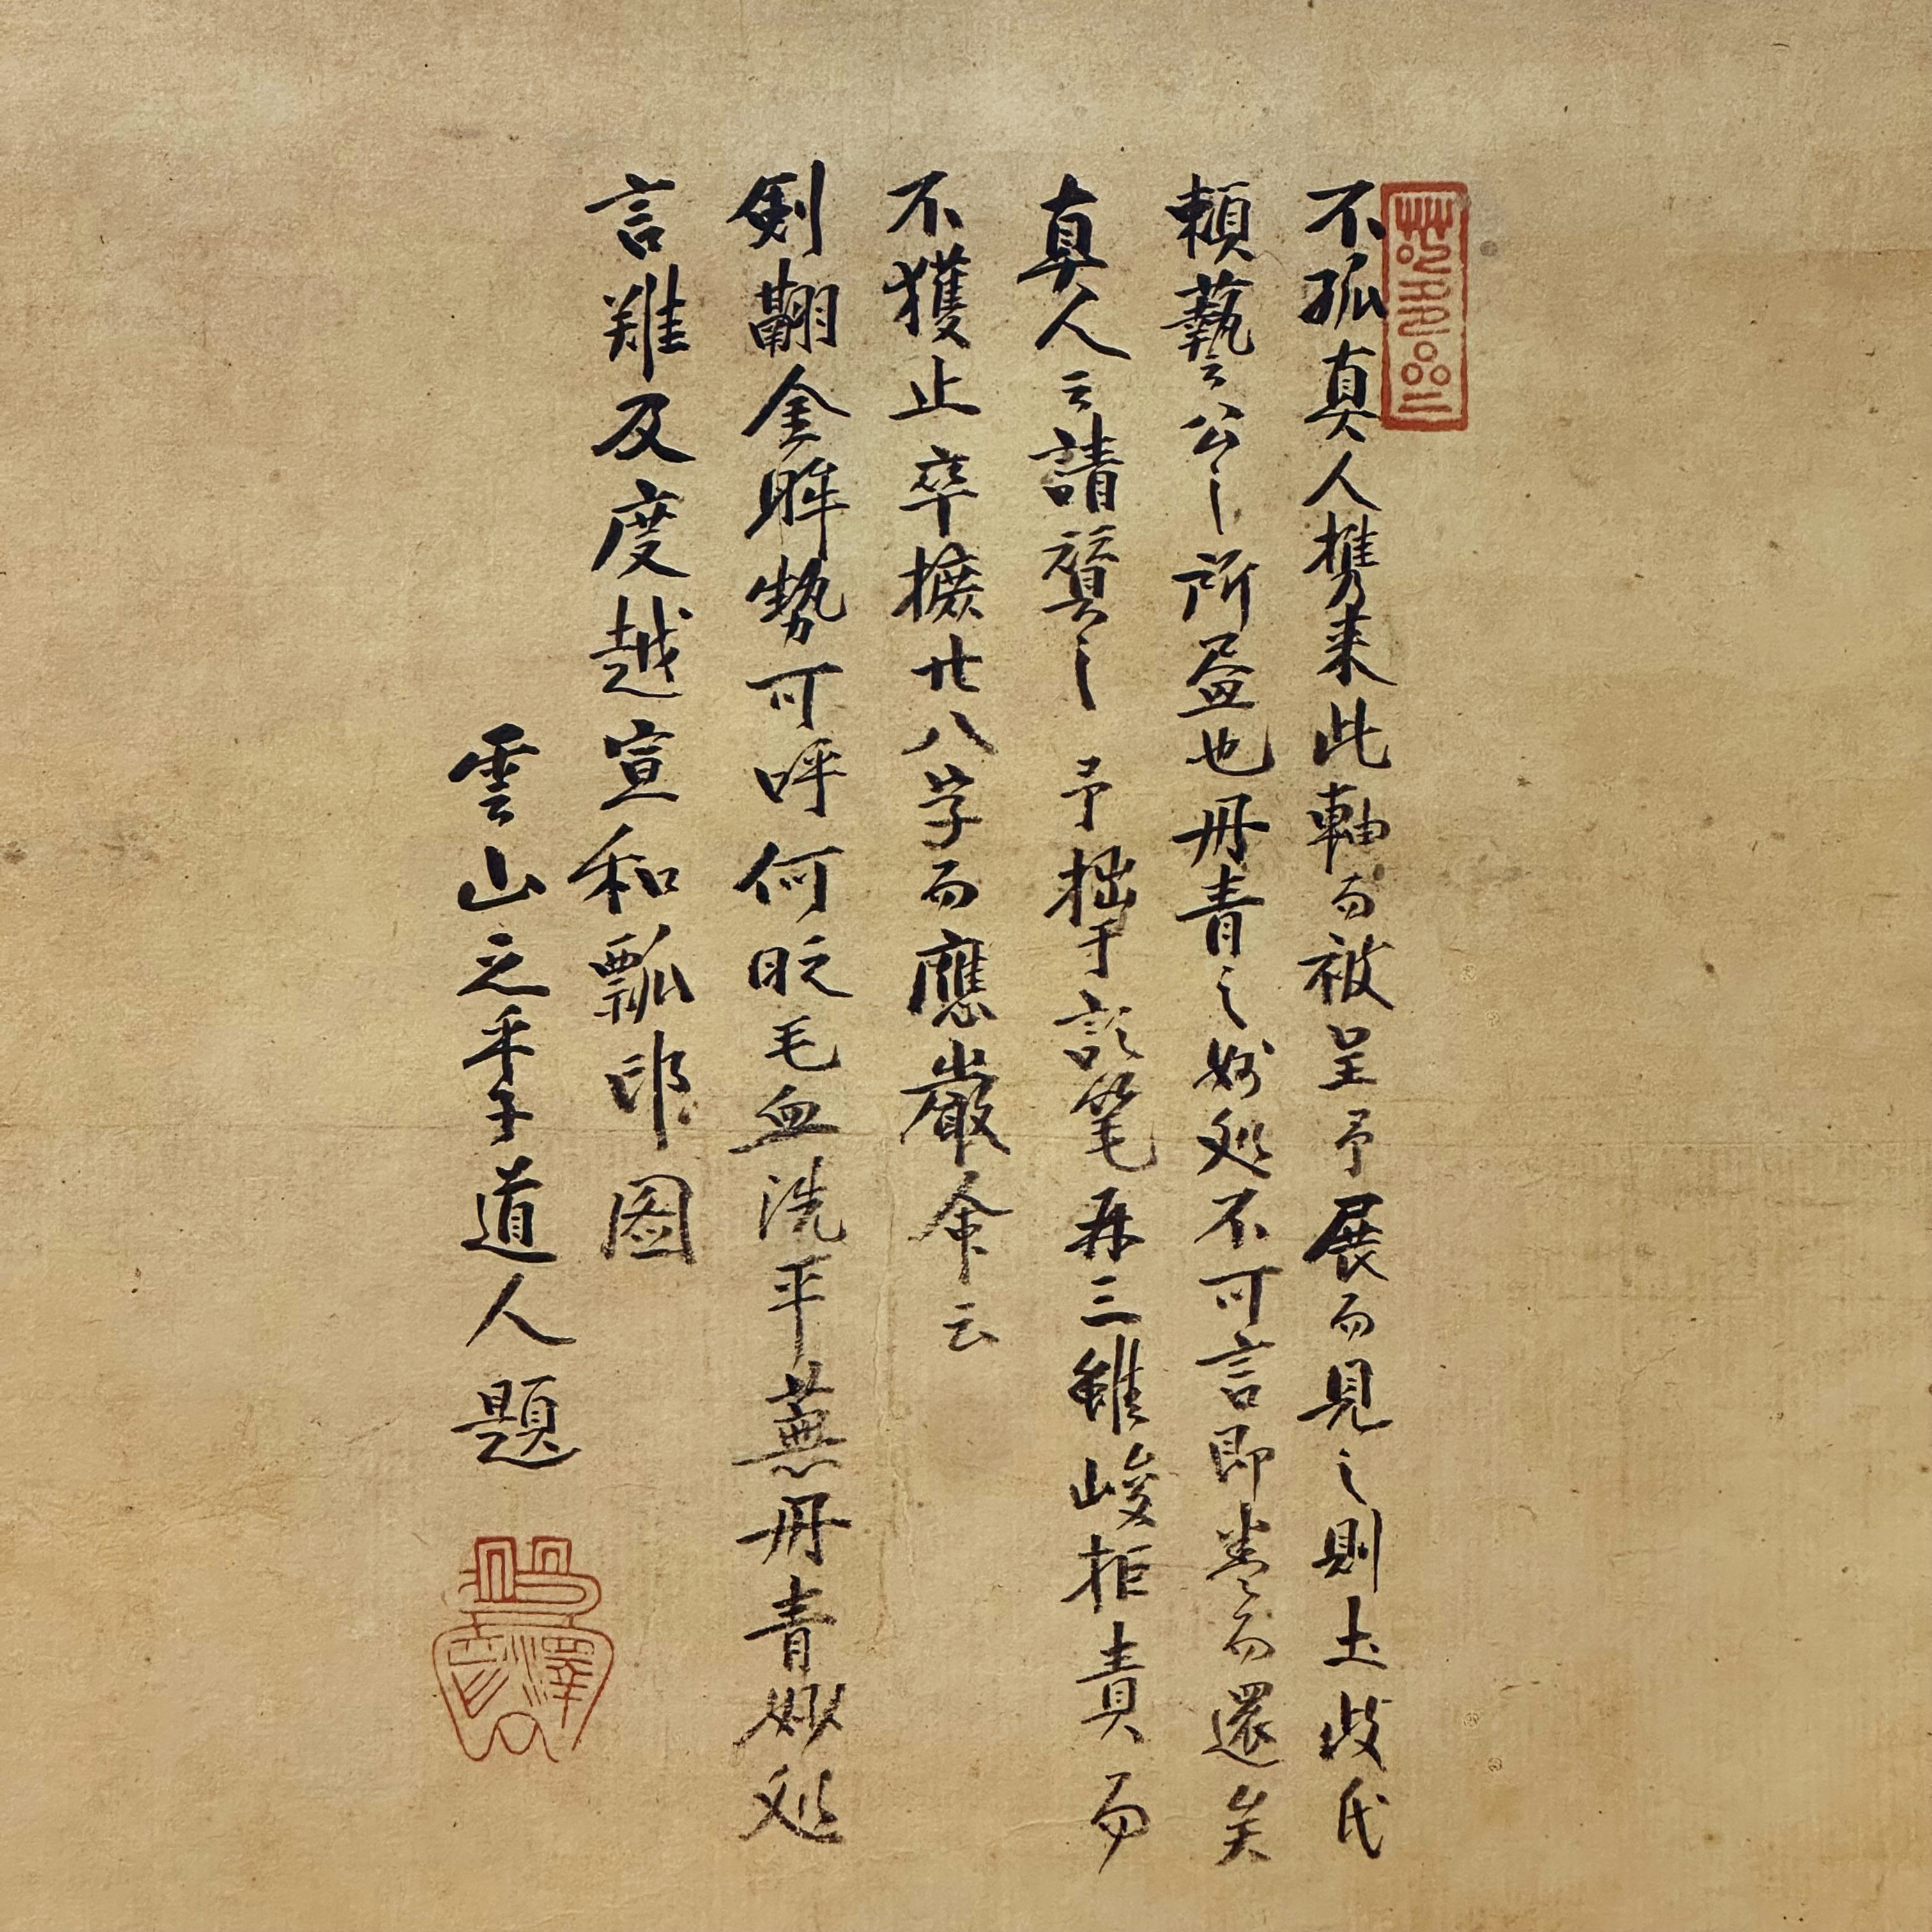 不孤真人携来此軸而被呈予展而見之則土岐氏
頼藝公之所畫也丹青之妙処不可言即巻而還矣
真人云請賛之予拙于詩筆再三雖峻拒責而
不獲止卒摭廿八字而應嚴命云
剣翮金眸勢可呼何时毛血洗平蕪丹青妙処
言難及度越宣和瓢印図
雲山之乎子道人題